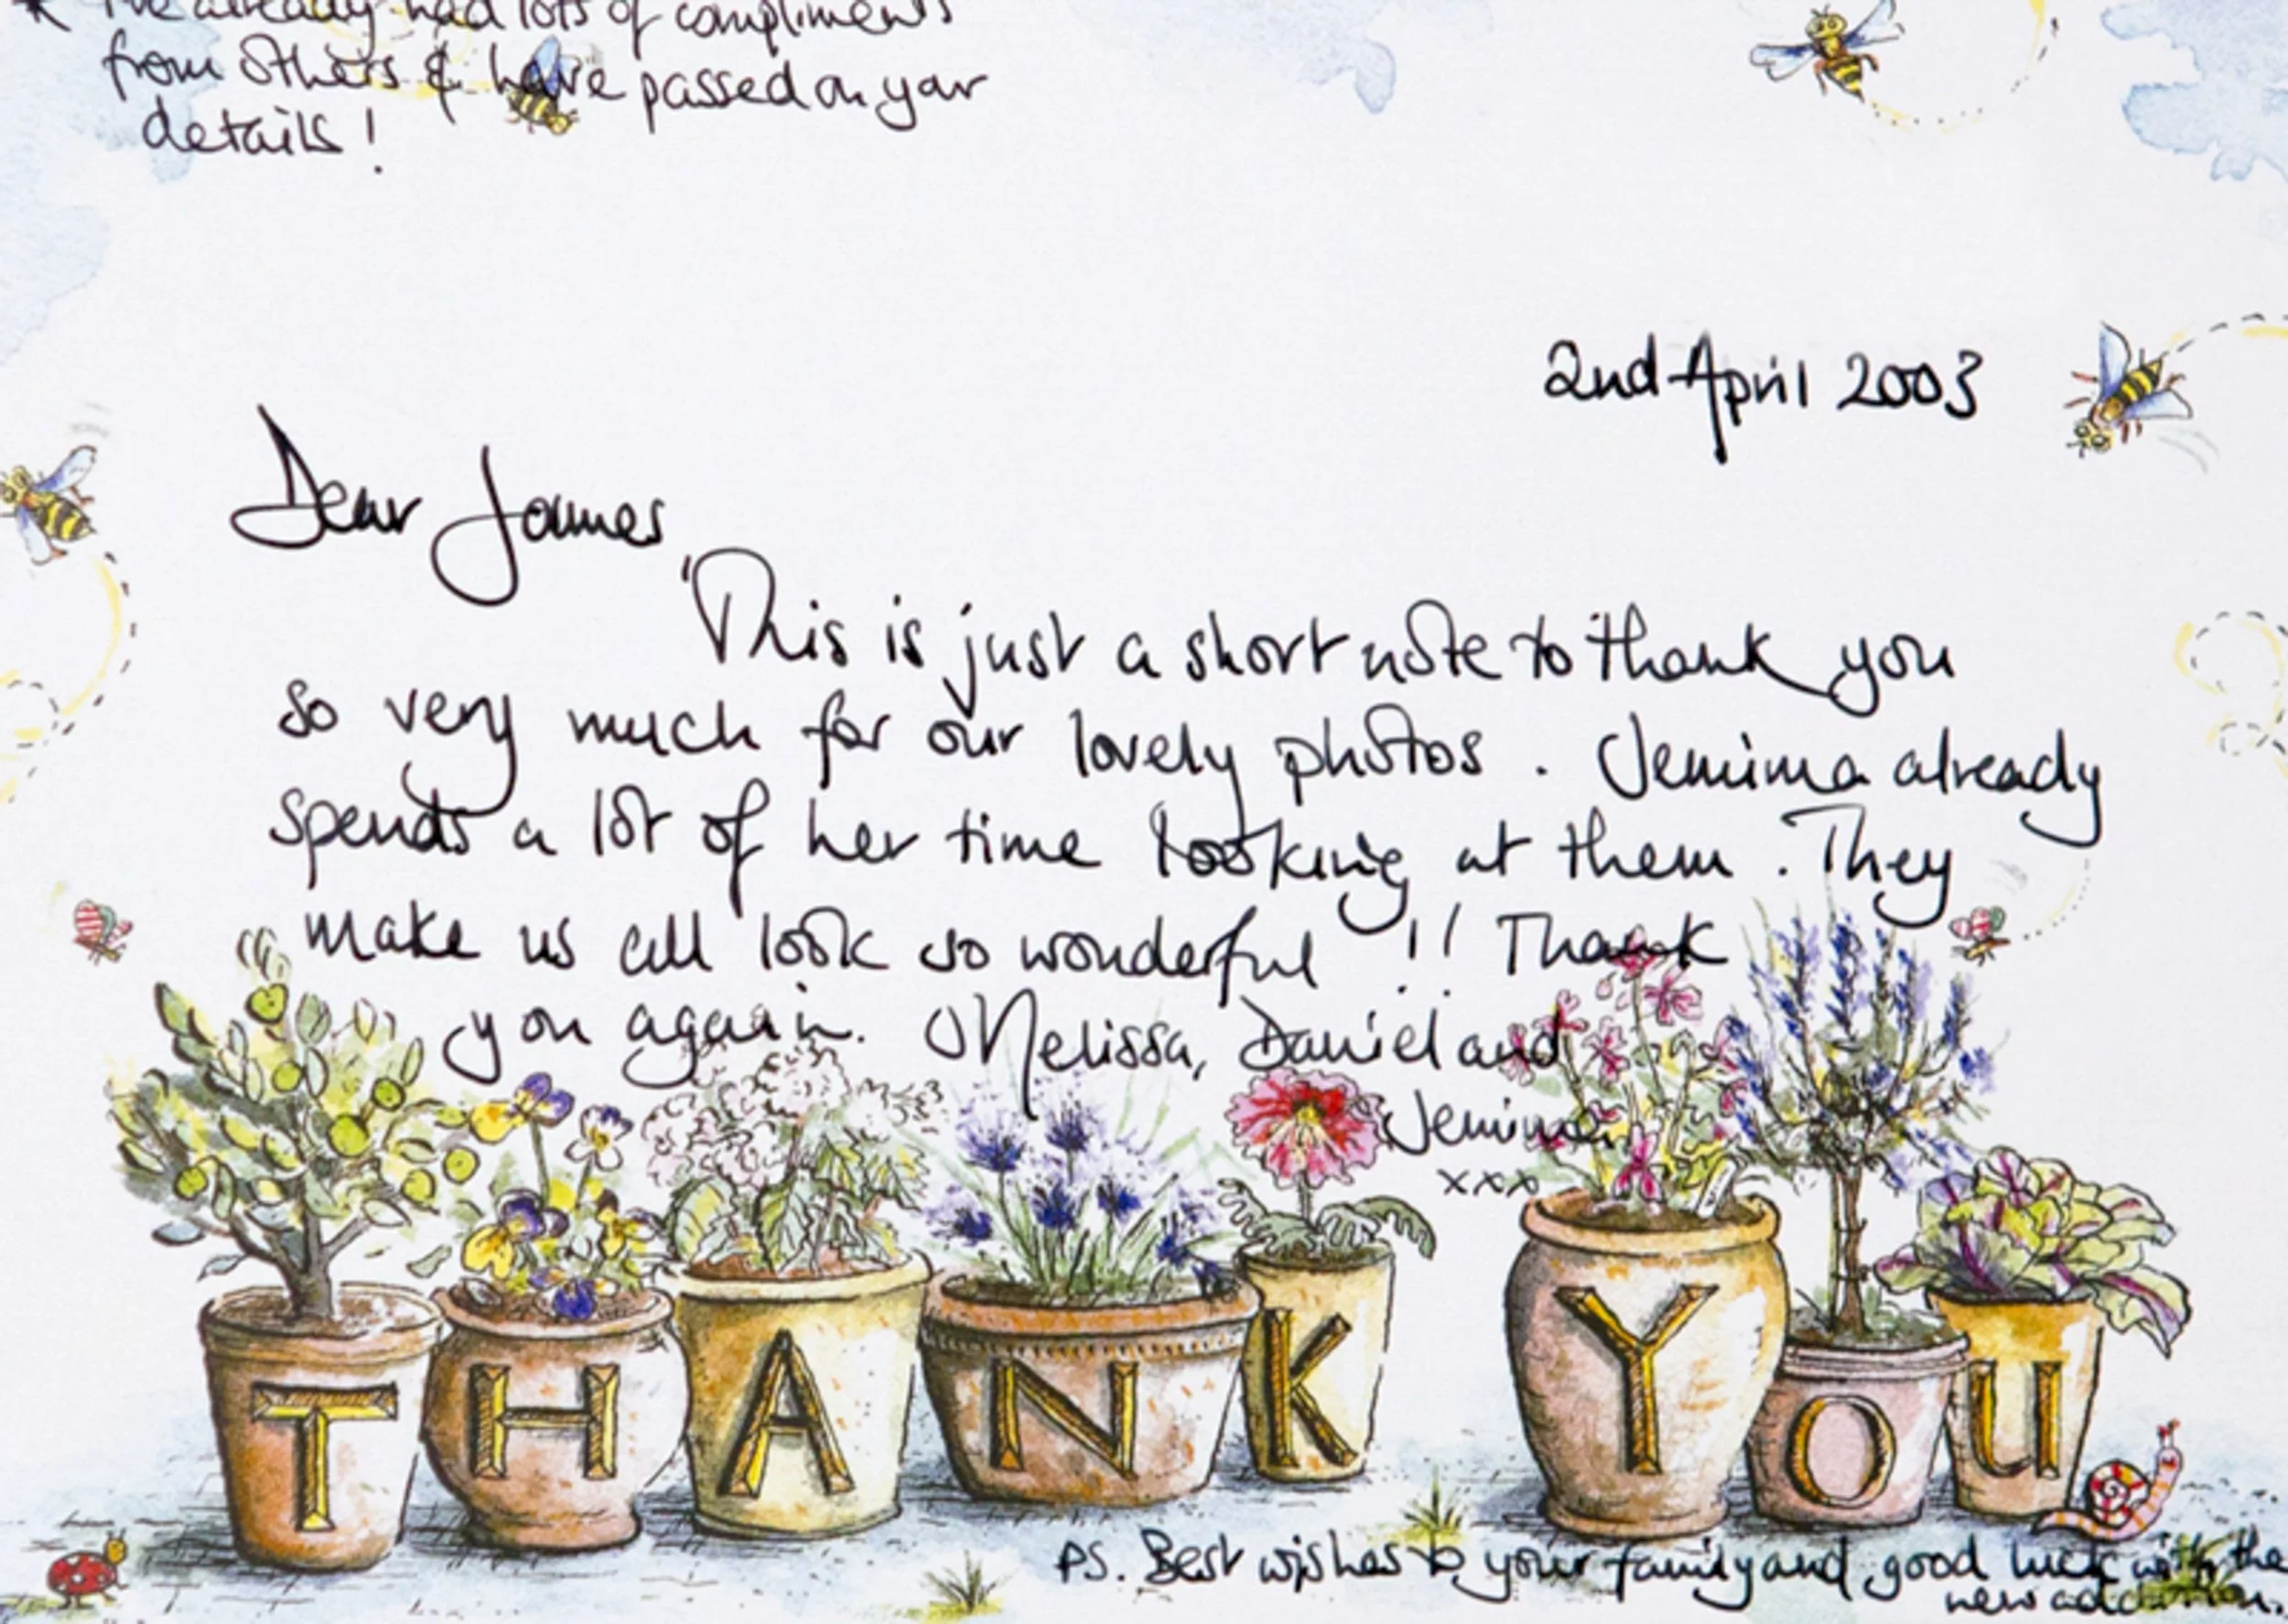 * I've already had lots of compliments
from others & have passed on your
details!
2nd April 2003
Dear James,
This is just a short note to thank you
so very much for our lovely photos. Jemima already
spends a lot of her time looking at them. They
make us all look so wonderful!! Thank
you again. Melissa, Daniel and
Jemima
xxx
THANK YOU
PS. Best wishes to your family and good luck with the
new addition.